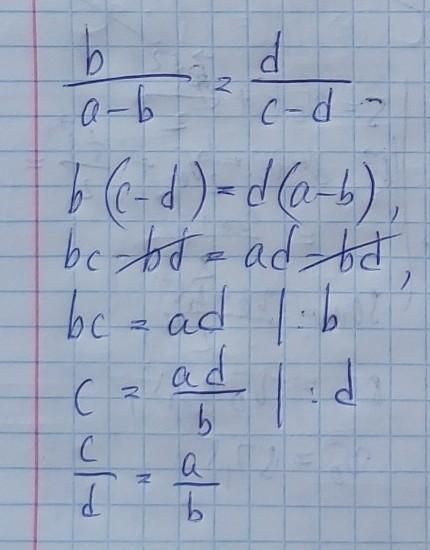 b/(a-b) = d/(c-d)
b(c-d)=d(a-b),
bc-bd=ad-bd,
bc=ad |:b
c = ad/b |:d
c/d = a/b